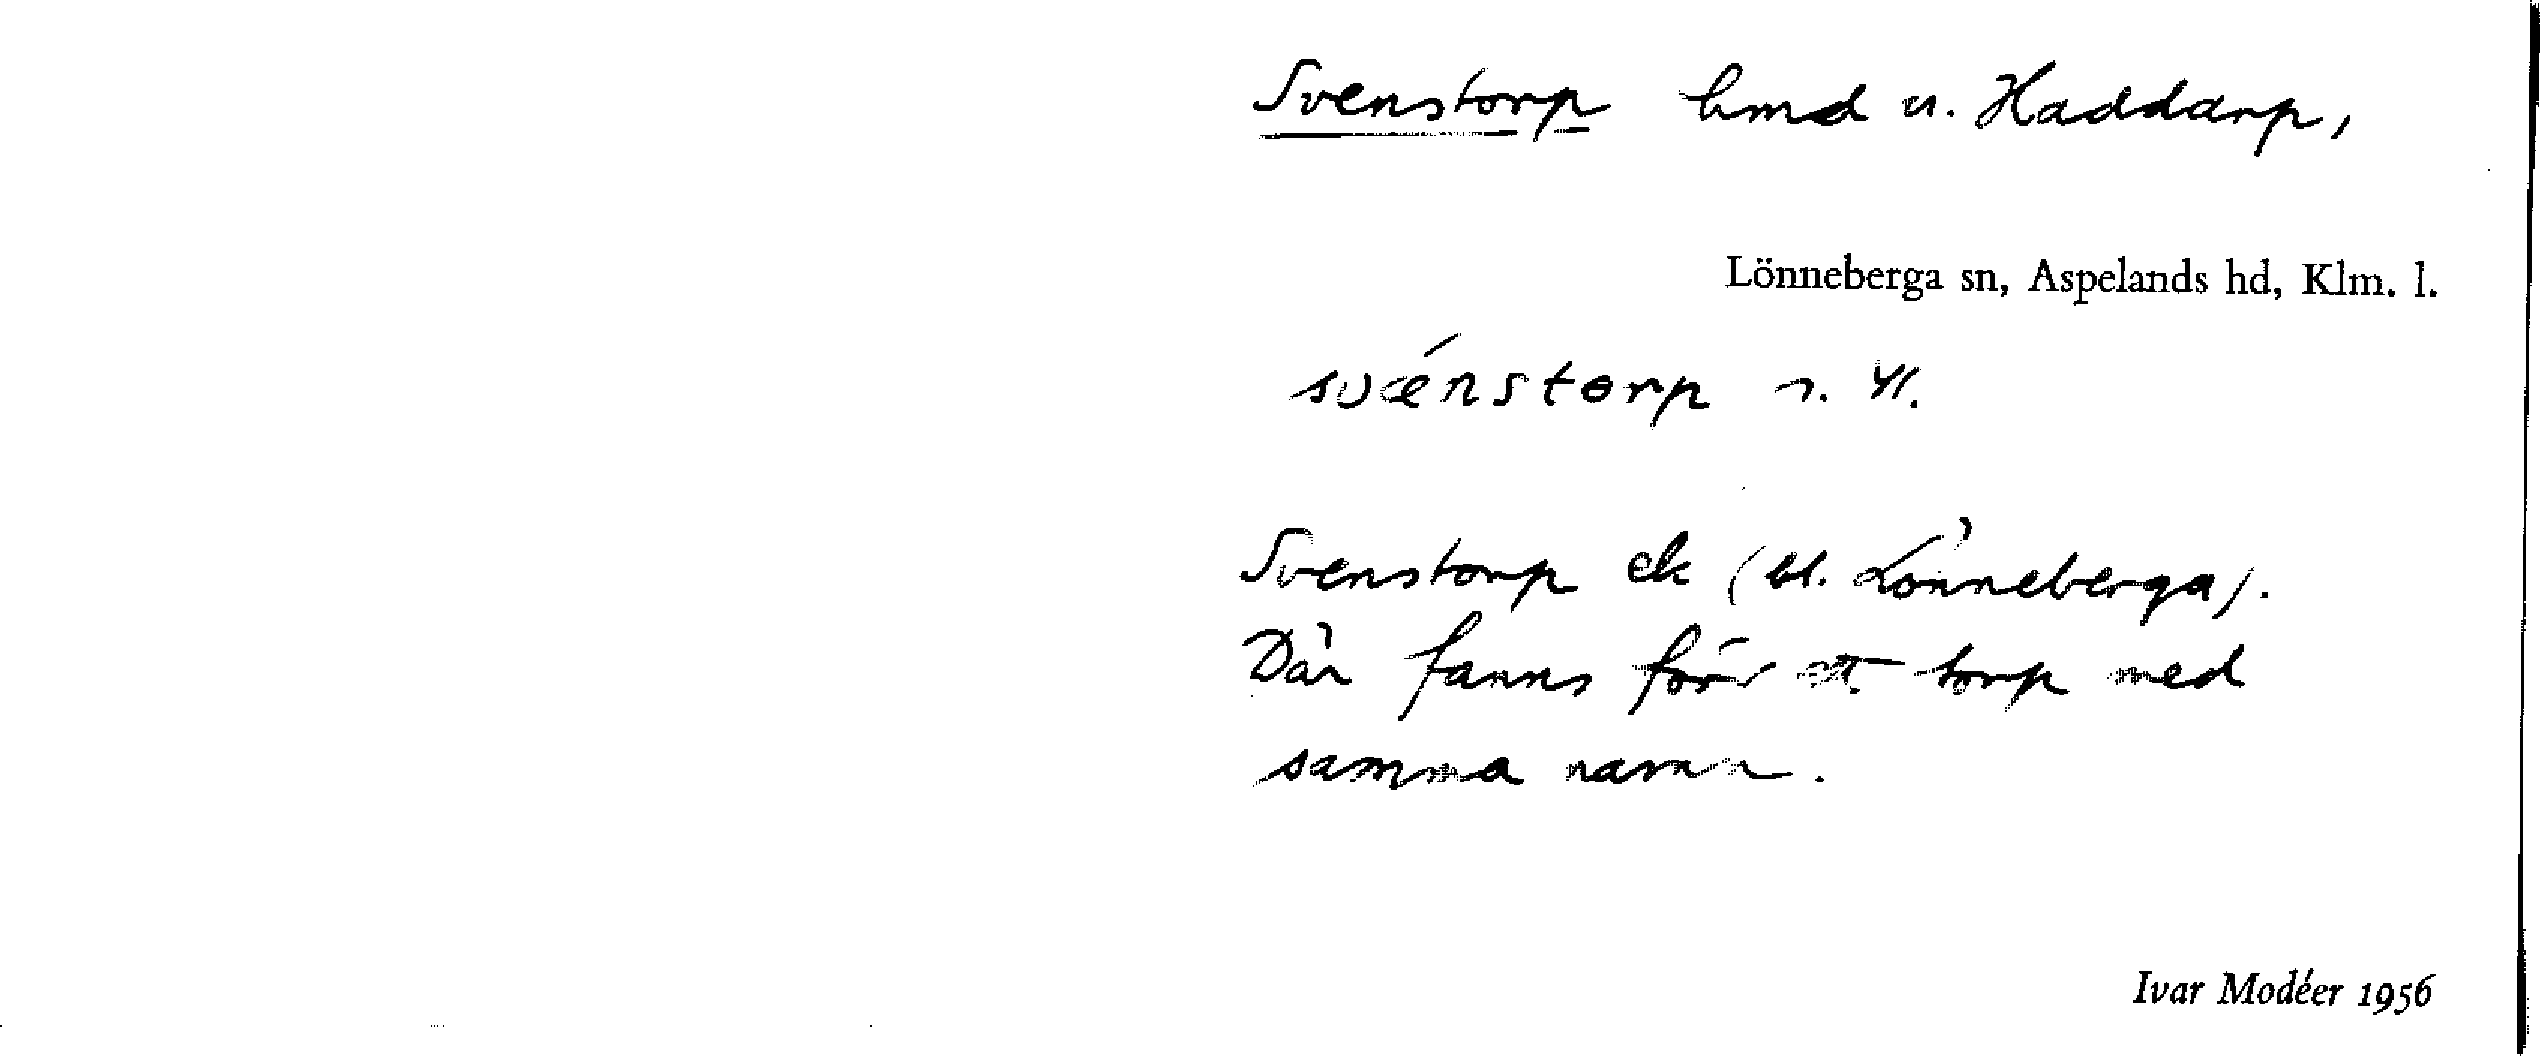 Svenstorp lmd u. Haddarp,
Lönneberga sn, Aspelands hd, Klm. l.
svænstorp
Svenstorp ek (bl. Lönneberga).
Där fanns förr ett torp med
samma namn.
Ivar Modéer 1956